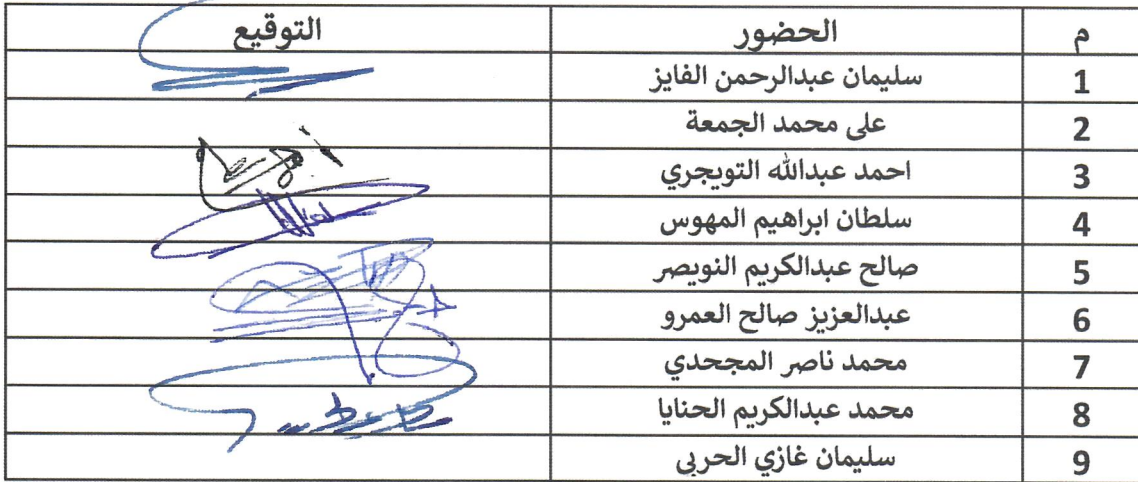 م الحضور التوقيع
1 سليمان عبدالرحمن الفايز
2 على محمد الجمعة
3 احمد عبدالله التويجري
4 سلطان ابراهيم المهوس
5 صالح عبدالكريم النويصر
6 عبدالعزيز صالح العمرو
7 محمد ناصر المجحدي
8 محمد عبدالكريم الحنايا
9 سليمان غازي الحربى